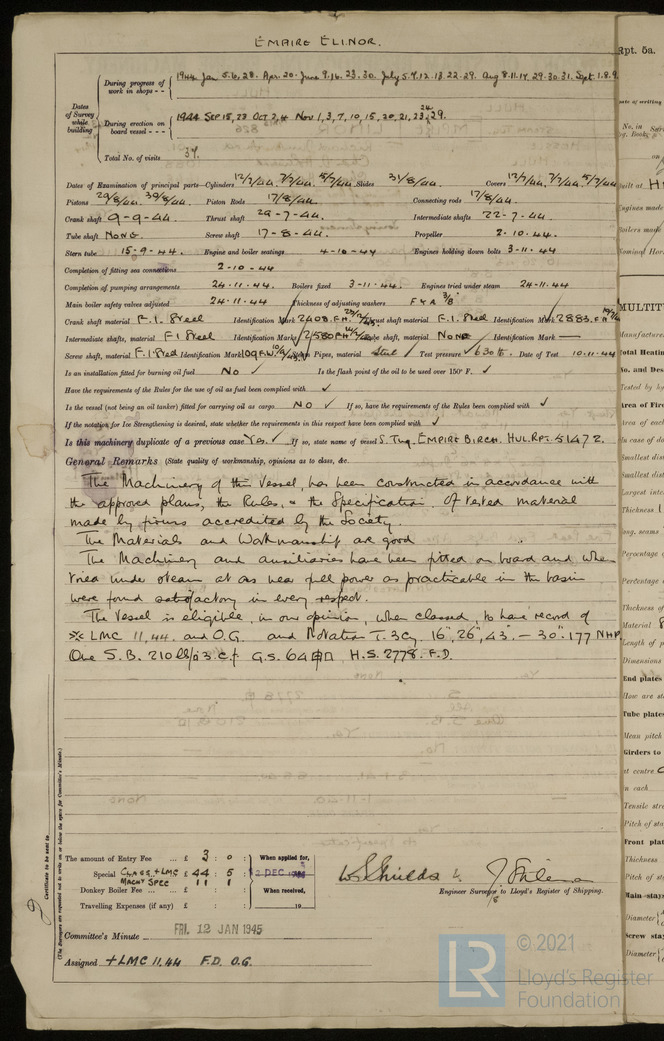 EMPIRE ELINOR.
Dates of Survey while building
During progress of work in shops - - 1944 Jan 5.6.28. Apr.20. June 9.16.23.30. July 5.7.12.13.22.29. Aug 8.11.17.29.30.31. Sept 1.8.9.
During erection on board vessel - - - 1944 Sep 15,23 Oct 2,4 Nov 1,3,7,10,15,20,21,23,24,29.
Total No. of visits 37.
Dates of Examination of principal parts—Cylinders 12/7/44, 7/7/44, 15/7/44 Slides 31/8/44. Covers 12/7/44, 7/7/44, 15/7/44
Pistons 29/8/44, 30/8/44. Piston Rods 17/8/44. Connecting rods 17/8/44.
Crank shaft 9-9-44. Thrust shaft 29-7-44. Intermediate shafts 22-7-44.
Tube shaft NONE. Screw shaft 17-8-44. Propeller 2.10.44.
Stern tube 15.9.44. Engine and boiler seatings 4-10-44 Engines holding down bolts 3-11-44
Completion of fitting sea connections 2-10-44
Completion of pumping arrangements 24.11.44. Boilers fixed 3-11-44. Engines tried under steam 24-11-44
Main boiler safety valves adjusted 24-11-44 Thickness of adjusting washers F & A 3/8"
Crank shaft material F.I. Steel Identification Mark 2408.F.H. Thrust shaft material F.I. Steel Identification Mark 2883.F.H
Intermediate shafts, material F I Steel Identification Marks 2580 F.H. Tube shaft, material NONE Identification Mark —
Screw shaft, material F.I Steel Identification Mark Steam Pipes, material Steel Test pressure 630 lb. Date of Test 10.11.44
Is an installation fitted for burning oil fuel NO ✓ Is the flash point of the oil to be used over 150° F. ✓
Have the requirements of the Rules for the use of oil as fuel been complied with ✓
Is the vessel (not being an oil tanker) fitted for carrying oil as cargo NO ✓ If so, have the requirements of the Rules been complied with ✓
If the notation for Ice Strengthening is desired, state whether the requirements in this respect have been complied with ✓
Is this machinery duplicate of a previous case Yes. ✓ If so, state name of vessel S.Tug. EMPIRE BIRCH. HUL.RPT. 51472.
General Remarks (State quality of workmanship, opinions as to class, &c.
The Machinery of the Vessel, has been constructed in accordance with
the approved plans, the Rules, & the Specification. Of tested material
made by firms accredited by the Society.
The Materials and Workmanship are good
The Machinery and auxiliaries have been fitted on board and when
tried under steam at as near full power as practicable in the basin
were found satisfactory in every respect.
The Vessel is eligible, in our opinion, when classed, to have record of
LMC 11,44. and O.G. and Notation T.3Cy. 16", 26", 43". – 30". 177 NHP.
One S.B. 210 lb 3.c.f G.S. 64 H.S. 2778. F.D.
The amount of Entry Fee ... £ 3 : 0 :
Special CLASS +LMC £ 44 : 5
MACHY SPEC 11 : 1
Donkey Boiler Fee ... ... £ : :
Travelling Expenses (if any) £ : :
When applied for,
DEC 1944
When received,
19
W. Shields &
Engineer Surveyor to Lloyd's Register of Shipping.
Committee's Minute FRI. 12 JAN 1945
Assigned +LMC 11,44 F.D. O.G.
Certificate to be sent to
(The Surveyors are requested not to write on or below the space for Committee's Minute.)
Rpt. 5a.
MULTIT
End plates
Tube plates
Girders to
© 2021
LR
Lloyd's Register
Foundation